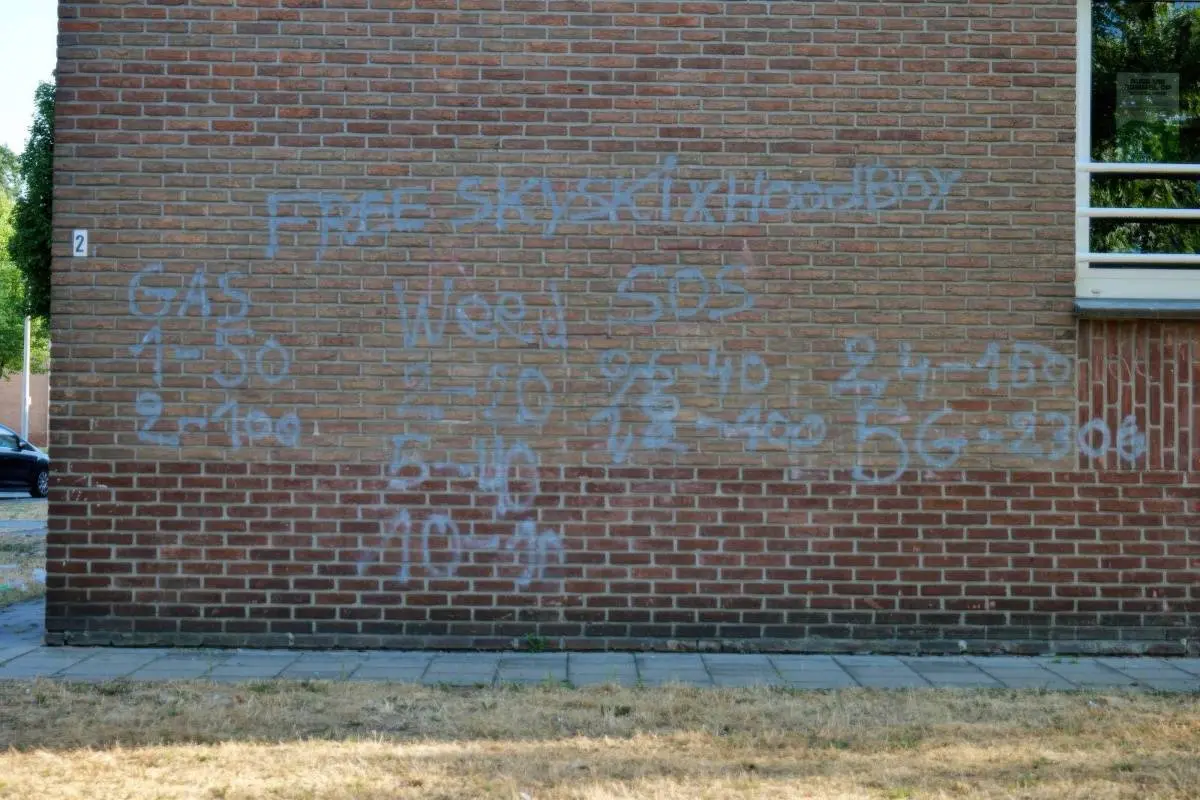 FREE SKI SKI X HoodBoy
2
GAS
1-50
2-100
Weed
2-20
5-40
10-
SOS
-40
-100
2,4-150
5G-230